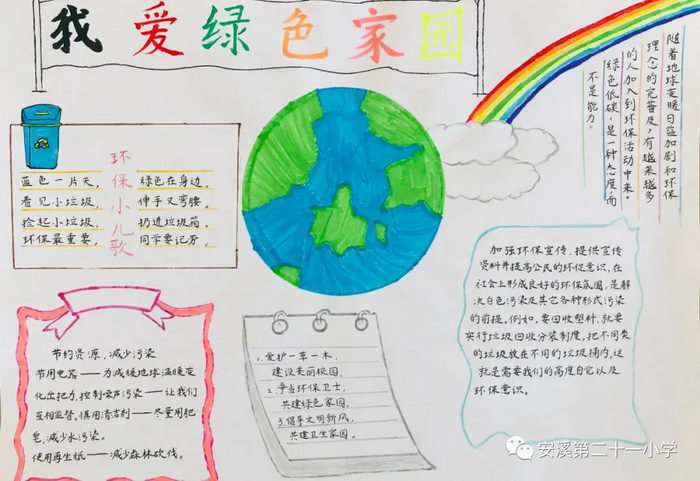 我爱绿色家园
随着地球变暖日益加剧和环保
理念的完善及，有越来越多
的人加入到环保活动中来。
绿色低碳，是一种态度而
不是能力。
环保小儿歌
蓝色一片天，绿色在身边，
看见小垃圾，伸手又弯腰，
捡起小垃圾，扔进垃圾箱，
环保最重要，同学要记劳。
加强环保宣传、提供宣传
资料并提高公民的环保意识，在
社会上形成良好的环保氛围，是解
决白色污染及其它各种形式污染
的前提。例如，要回收塑料，就要
实行垃圾回收分装制度，把不同类
的垃圾放在不同的垃圾桶内，这
就是需要我们的高度自觉以及
环保意识。
节约资源，减少污染
节用电器——为减缓地球温暖变
化出把力，控制噪声污染——让我们
互相监督，慎用清洁剂——尽量用肥
皂，减少水污染。
使用再生纸——减少森林砍伐。
1.爱护一草一木，
建设美丽校园。
2.争当环保卫士，
共建绿色家园。
3.倡导文明新风，
共建卫生家园。
安溪第二十一小学